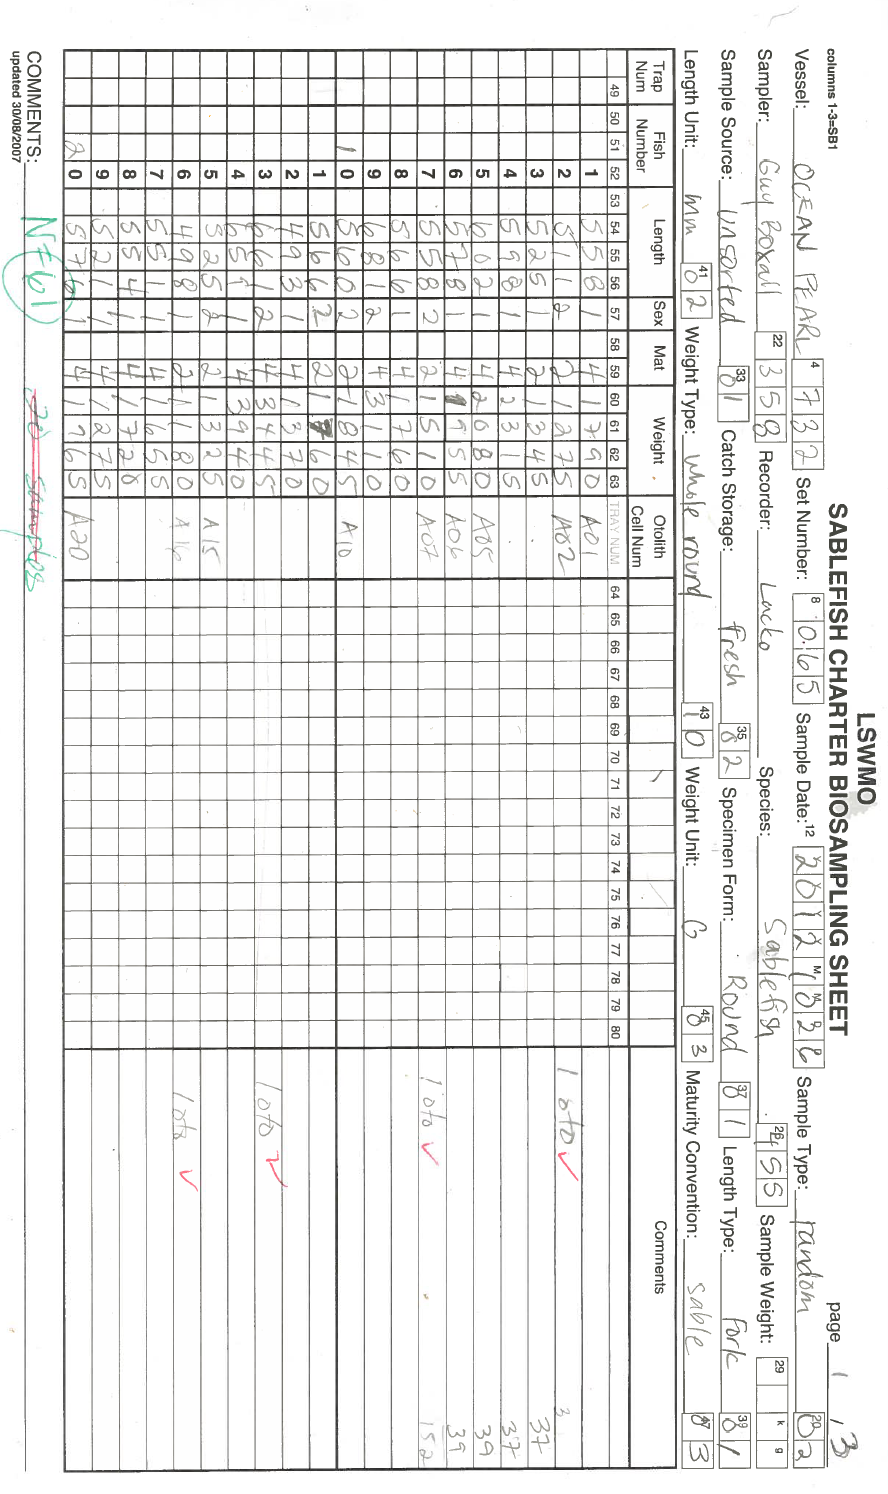 LSWMO
SABLEFISH CHARTER BIOSAMPLING SHEET
columns 1-3=SB1
page 1 / 3
Vessel: OCEAN PEARL 4 732 Set Number: 8 065 Sample Date: 12 20121026 Sample Type: random 20 02
Sampler: Guy Boxall 22 358 Recorder: Lacko Species: Sablefish 26 455 Sample Weight: 29 k g
Sample Source: unsorted 33 01 Catch Storage: fresh 35 02 Specimen Form: Round 37 01 Length Type: Fork 39 01
Length Unit: mm 41 02 Weight Type: whole round 43 10 Weight Unit: G 45 03 Maturity Convention: sable 47 03
Trap Num Fish Number Length Sex Mat Weight Otolith Cell Num Comments
49 50 51 52 53 54 55 56 57 58 59 60 61 62 63 TRAY NUM 64 65 66 67 68 69 70 71 72 73 74 75 76 77 78 79 80
1 558 1 4 1790 A01
2 511 2 2 1275 A02 1 oto ✓ 3
3 525 1 2 1345 37
4 598 1 4 2315 37
5 602 1 4 2080 A05 39
6 578 1 4 1955 A06 39
7 558 2 2 1510 A07 1 oto ✓ 152
8 566 1 4 1760
9 681 2 4 3110
1 0 560 2 2 1845 A10
1 566 2 2
2 493 1 4 1370
3 661 2 4 3445 1 oto ✓
4 651 1 4 3940
5 525 2 2 1325 A15
6 498 1 2 1180 A16 1 oto ✓
7 551 1 4 1655
8 554 1 4 1720
9 521 1 4 1275
2 0 576 1 4 1965 A20
COMMENTS: N761 20 samples
updated 30/08/2007